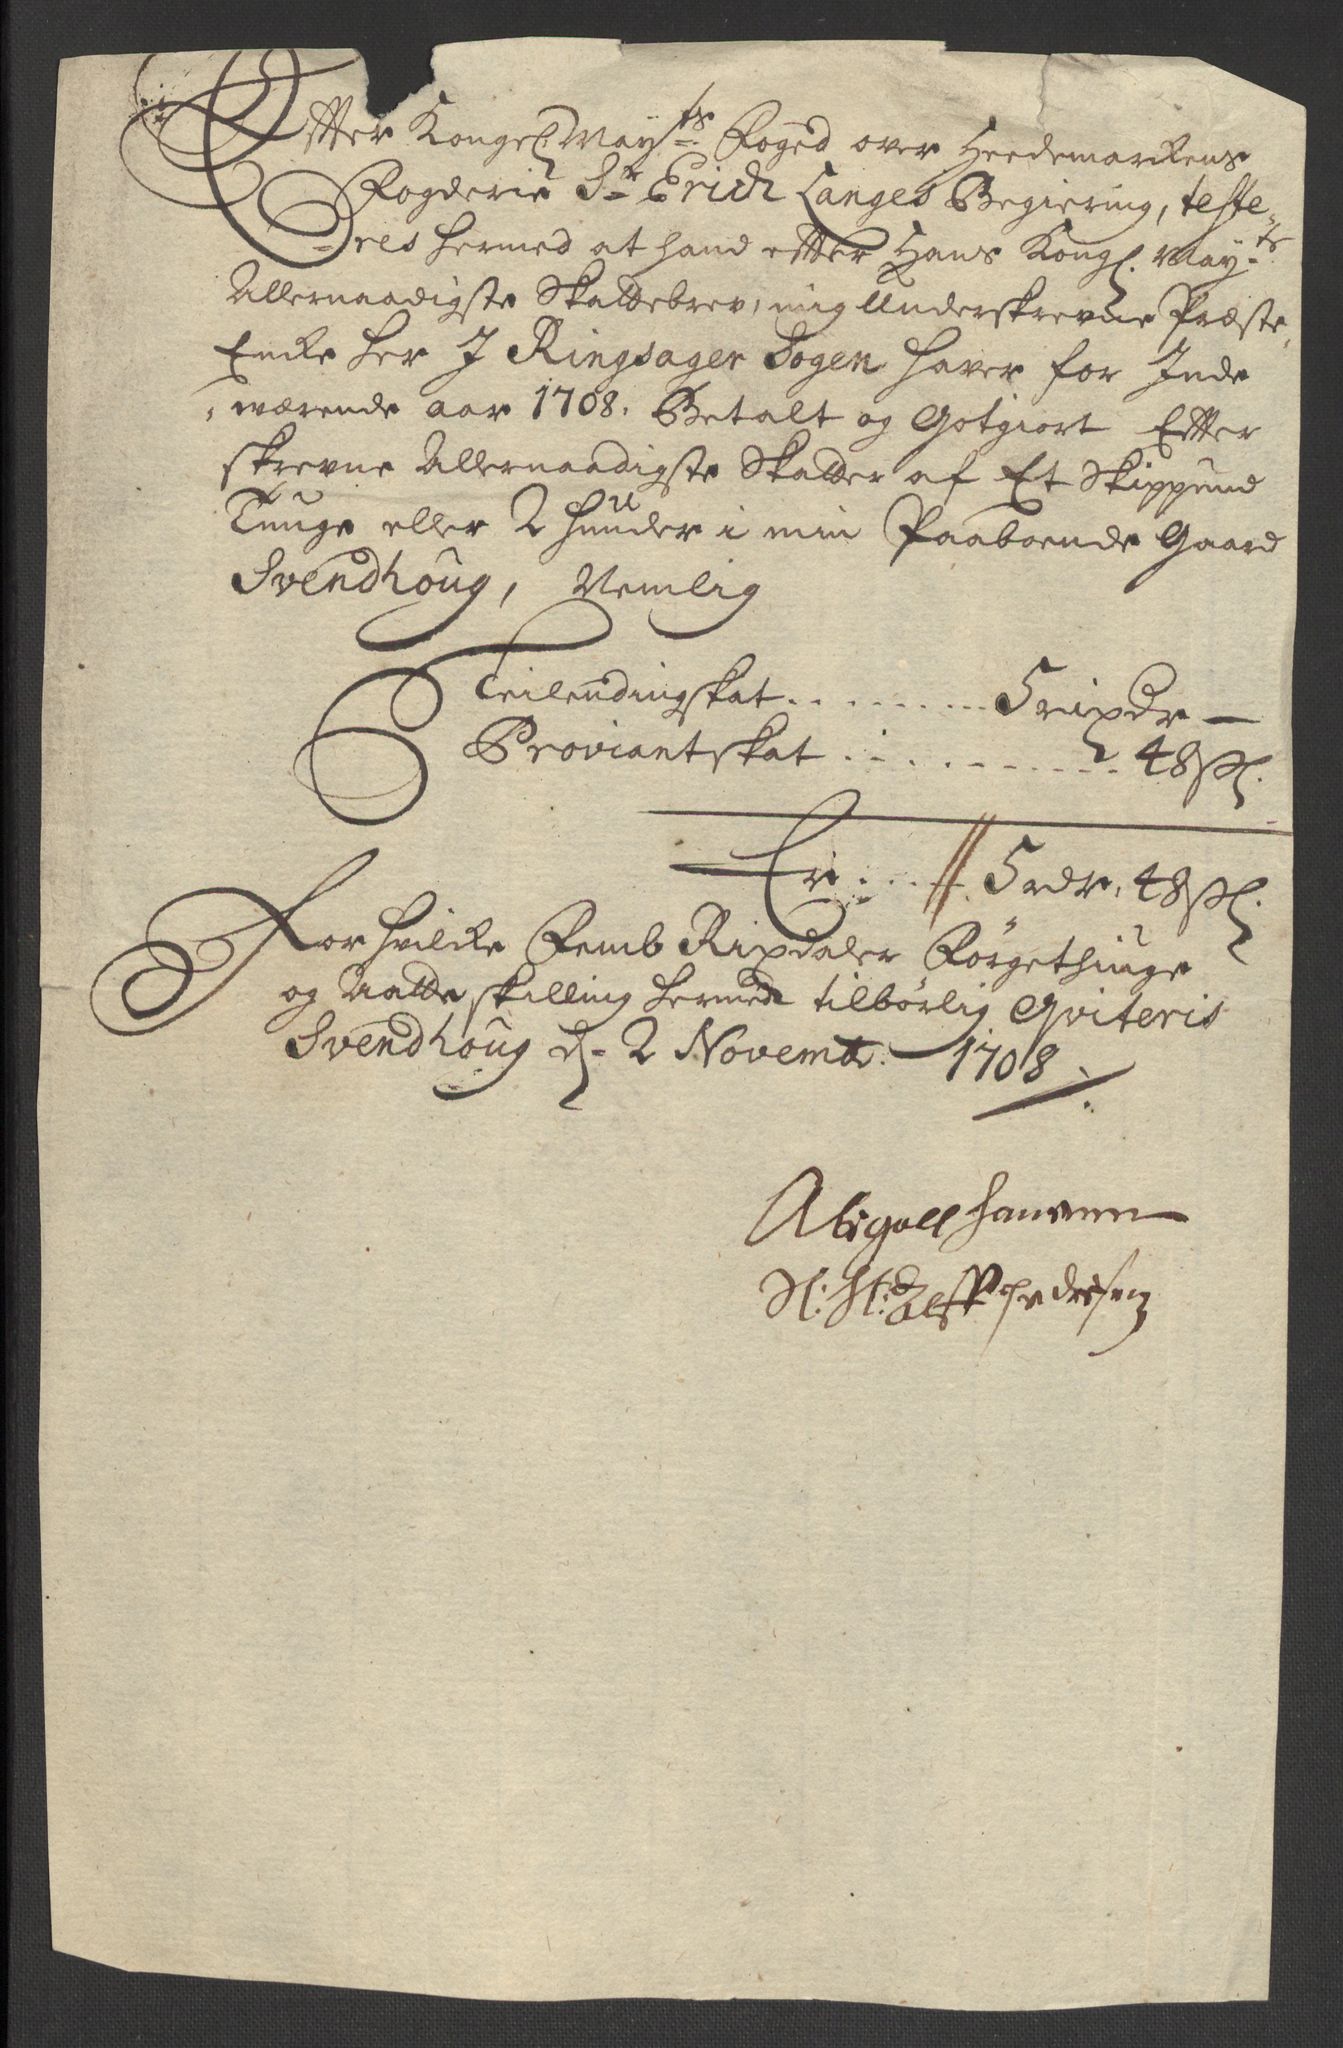 Effter Kongel May:ts Foged over Heedemarckens
Fogderie Sr Erich Langes Begiering, teste-
=res hermed at hand effter Hans Kongl. May:ts
Allernaadigste Skattebrev, mig Underskrevne Præste,
Encke her J Ringsager Sogen haver for Inde
,værende aar 1708. Betalt og Gotgiort Effter
skrevne Allernaadigste Skatter af Et Skippund
Tunge eller 2 huuder i min Paaboende Gaard
Svendhoug, Nemlig
Leilendingskat . . . . . . . . . 5 rixdr —
Proviantskat . . . . . . . . . . 48 skl.
Er . . . . 5 rdr. 48 skl.
For hvilcke Femb Rixdaler Førgethiuge
og Aatte skilling hermed tilbørlig Qviteris
Svendhoug d. 2 Novembr. 1708.
Abigaell Hansen
Sl: Hr: